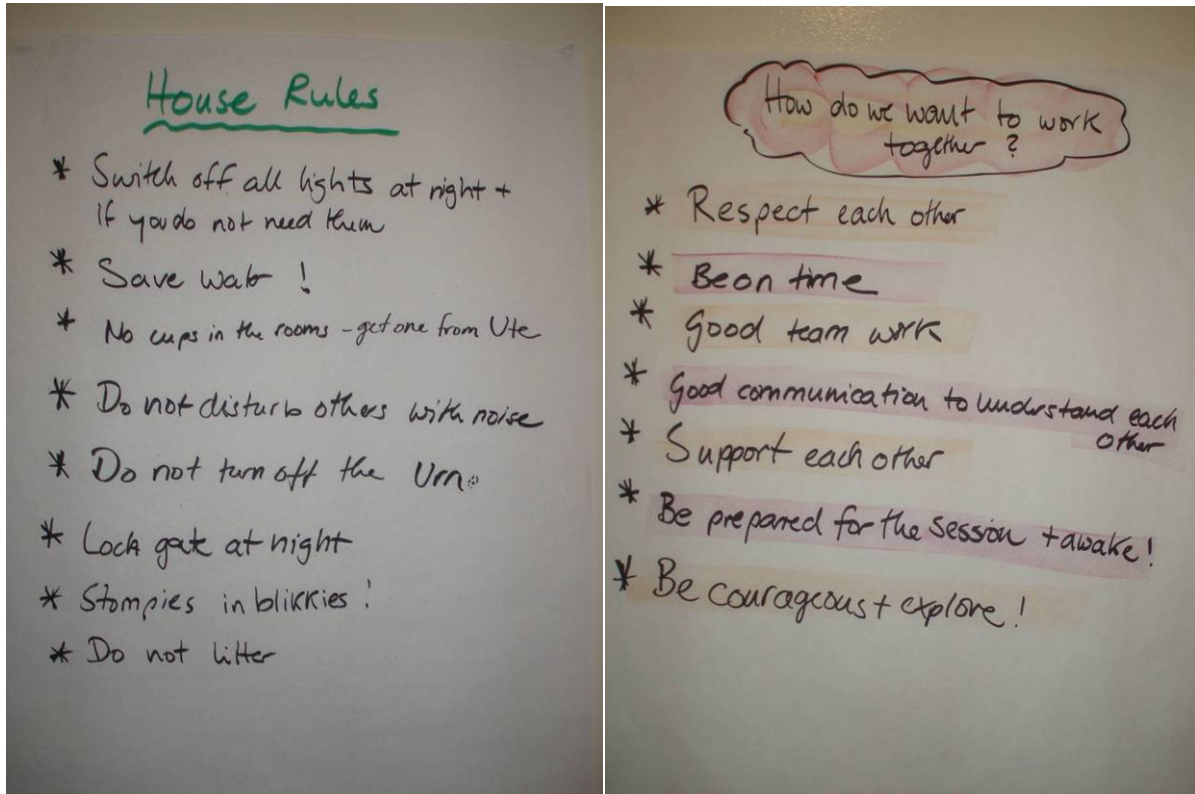 House Rules
* Switch off all lights at night +
if you do not need them
* Save water !
* No cups in the rooms - get one from Ute
* Do not disturb others with noise
* Do not turn off the Urn.
* Lock gate at night
* Stompies in blikkies !
* Do not litter
How do we want to work
together ?
* Respect each other
* Be on time
* Good team work
* Good communication to understand each
other
* Support each other
* Be prepared for the session + awake !
* Be courageous + explore !